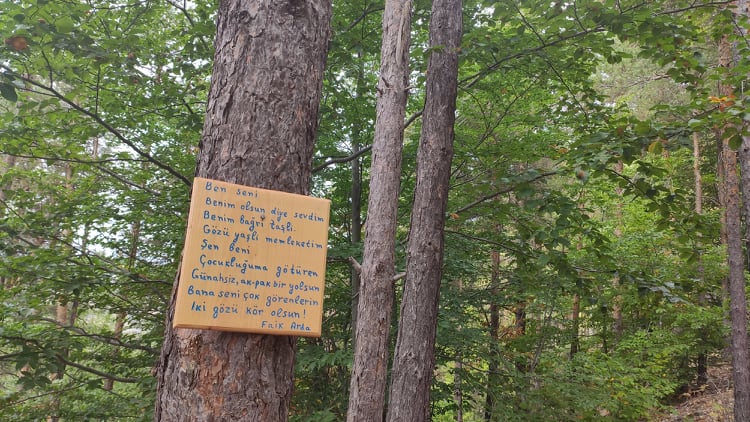 Ben seni
Benim olsun diye sevdim
Benim bağrı taşlı.
Gözü yaşlı memleketim
Sen beni
Çocukluğuma götüren
Günahsız, ak-pak bir yolsun
Bana seni çok görenlerin
İki gözü kör olsun!
Faik Arda